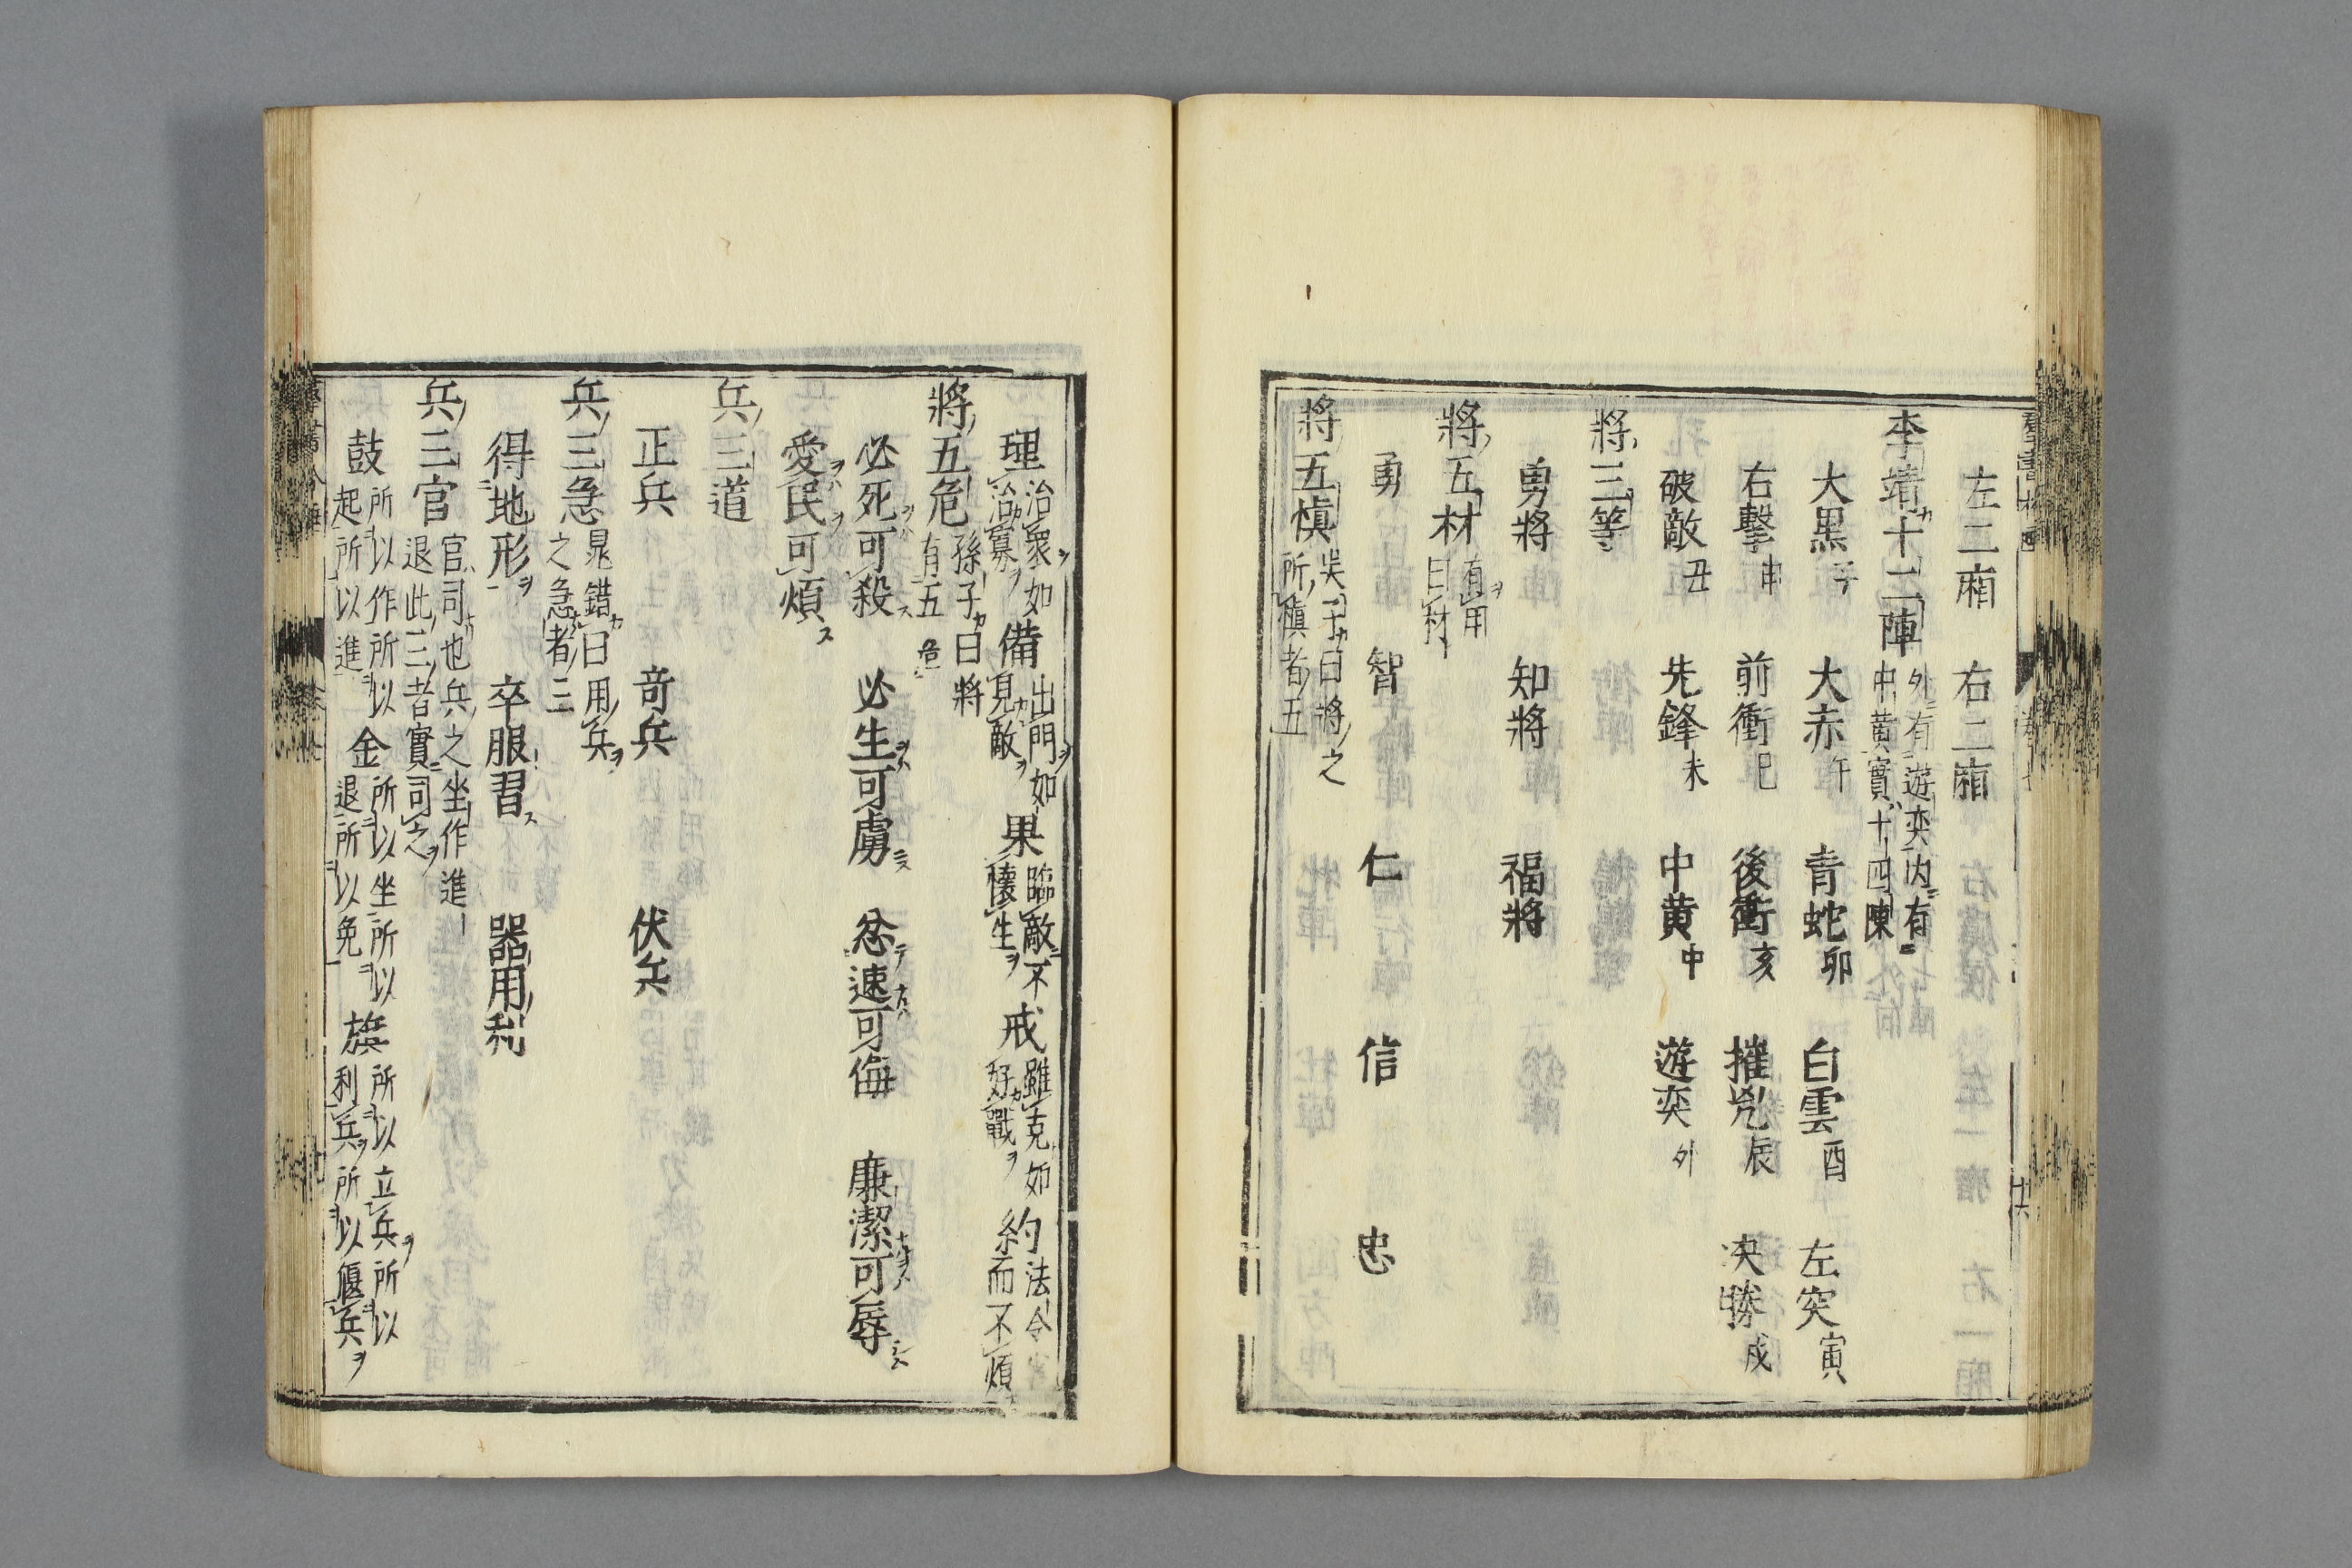 左二廂　右二廂
李靖十二陣　外有遊奕内有中黄實十四陳
大黒子　大赤午　青蛇卯　白雲酉　左突寅
右擊申　前衝巳　後衝亥　摧兇辰　決勝戌
破敵丑　先鋒未　中黄中　遊奕外
將三等
勇將　知將　福將
將五材　有用曰材
勇　智　仁　信　忠
將五愼　吳子曰將之所愼者五
理治衆如治寡　備出門如見敵　果臨敵不懷生　戒雖克如好戰　約法令而不煩
將五危　孫子曰將有五危
必死可殺　必生可虜　忿速可侮　廉潔可辱
愛民可煩
兵三道
正兵　奇兵　伏兵
兵三急　晁錯曰用兵之急者三
得地形　卒服習　器用利
兵三官　官司也兵之坐作進退此三者實司之
鼓所以作所以起所以進　金所以坐所以退所以免　旗所以立兵所以利兵所以偃兵